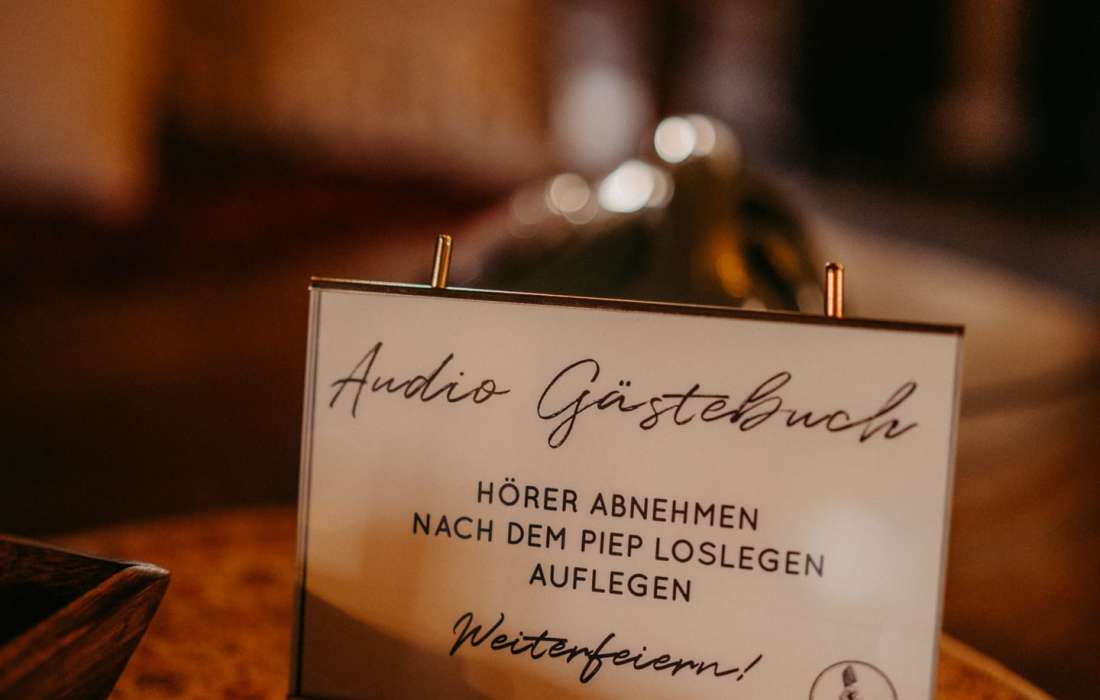 Audio Gästebuch
HÖRER ABNEHMEN
NACH DEM PIEP LOSLEGEN
AUFLEGEN
Weiterfeiern!